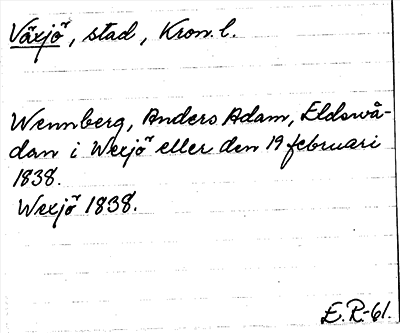 Växjö, stad, Kron. l.
Wennberg, Anders Adam, Eldswå-
dan i Wexjö eller den 19 februari
1838.
Wexjö 1838.
E.R-61.